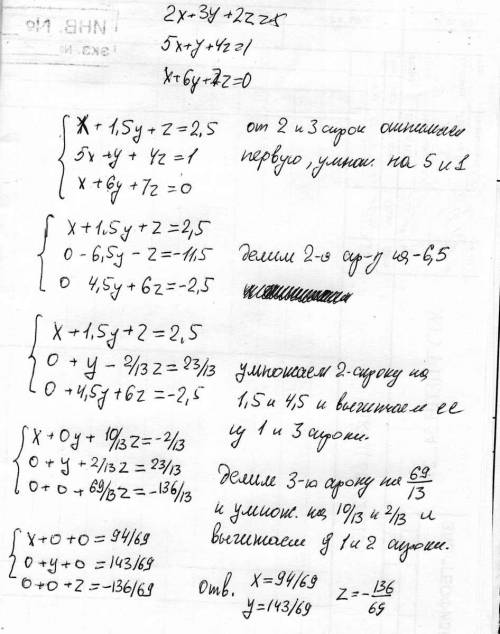 2x+3y+2z=5
5x+y+4z=1
x+6y+7z=0
x+1,5y+z=2,5 от 2 и 3 строк отнимаем
5x+y+4z=1 первую, умнож. на 5 и 1
x+6y+7z=0
x+1,5y+z=2,5
0-6,5y-z=-11,5 делим 2-ю стр-у на -6,5
0 4,5y+6z=-2,5
x+1,5y+z=2,5
0+y-2/13z=23/13 умножаем 2-строку на
0+4,5y+6z=-2,5 1,5 и 4,5 и вычитаем ее
из 1 и 3 строки.
x+0y+10/13z=-2/13
0+y+2/13z=23/13 Делим 3-ю строку на 69/13
0+0+69/13z=-136/13 и умнож. на 10/13 и 2/13 и
вычитаем из 1 и 2 строки.
x+0+0=94/69
0+y+0=143/69
0+0+z=-136/69 Отв. x=94/69 z=-136/69
y=143/69